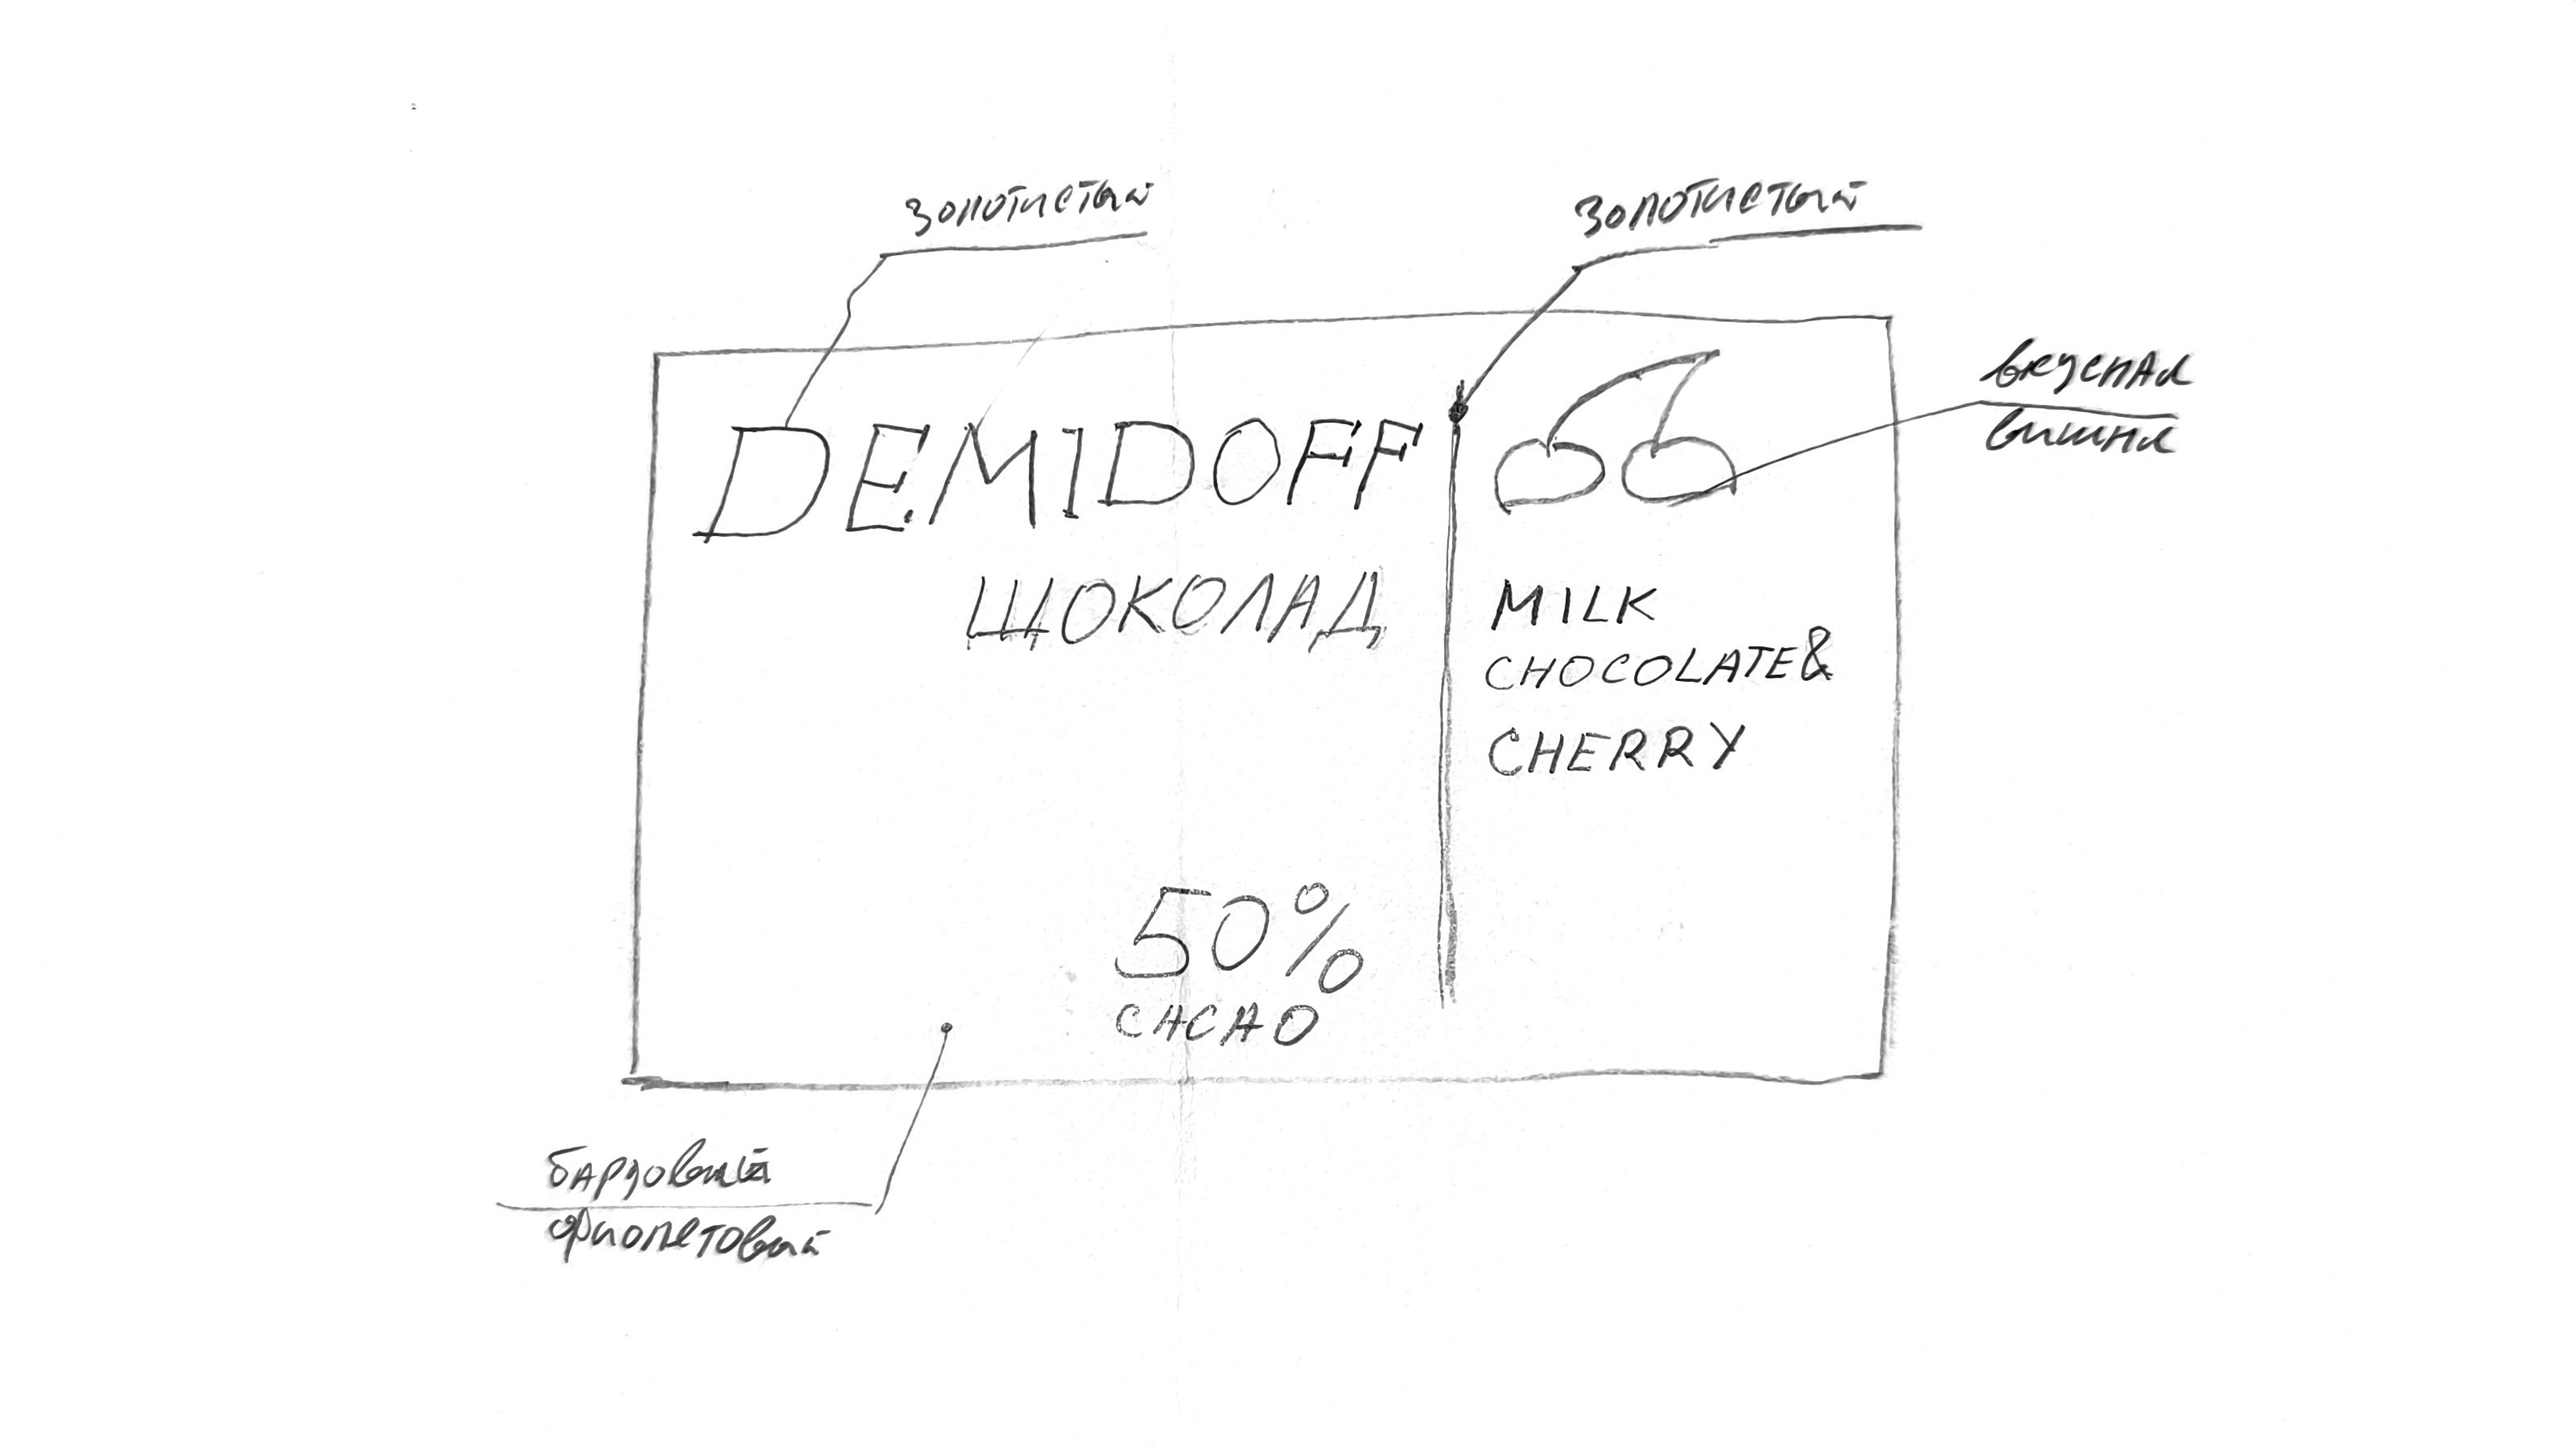 золотистый
золотистый
вкусная
вишня
DEMIDOFF
ШОКОЛАД
MILK
CHOCOLATE&
CHERRY
50%
CACAO
бардовый
фиолетовый